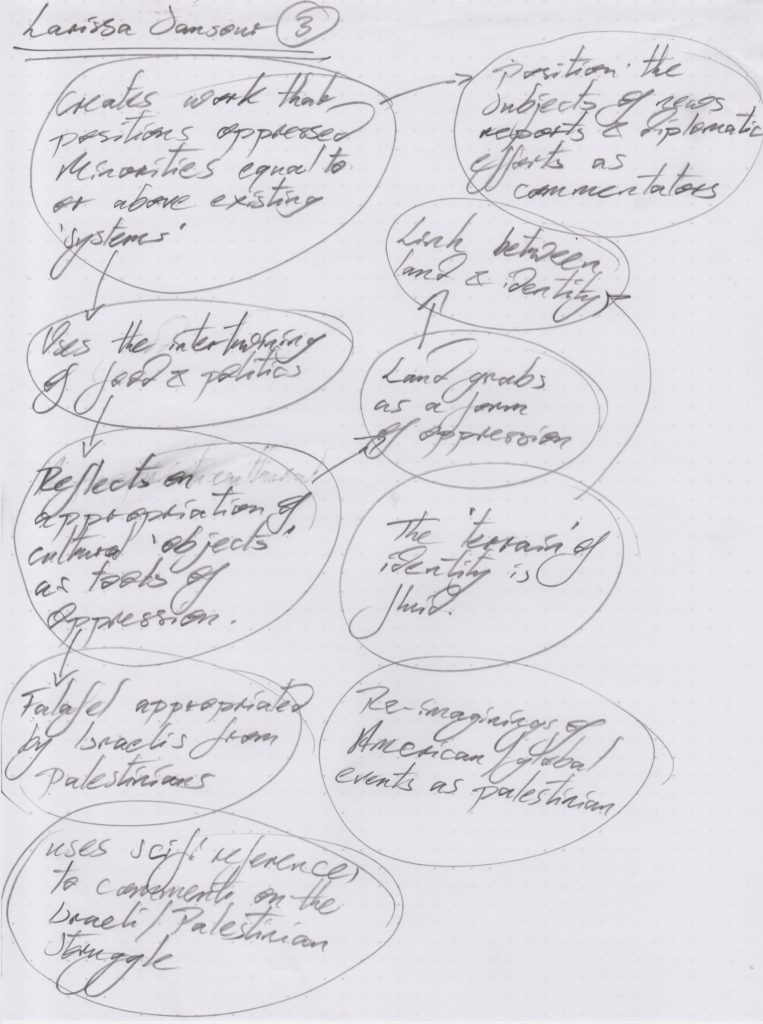 Larissa Sansour 3
Creates work that
positions oppressed
Minorities equal to
or above existing
'systems'
position the
subjects of news
reports & diplomatic
efforts as
commentators
Link between
land & identity
Uses the intertwining
of food & politics
Land grabs
as a form
of oppression
Reflects on
appropriation of
cultural 'objects'
as tools of
oppression.
The 'terrain' of
identity is
fluid.
Falafel appropriated
by Israelis from
Palestinians
Re-imaginings of
American/global
events as palestinian
uses scifi references
to comment on the
Israeli/Palestinian
struggle